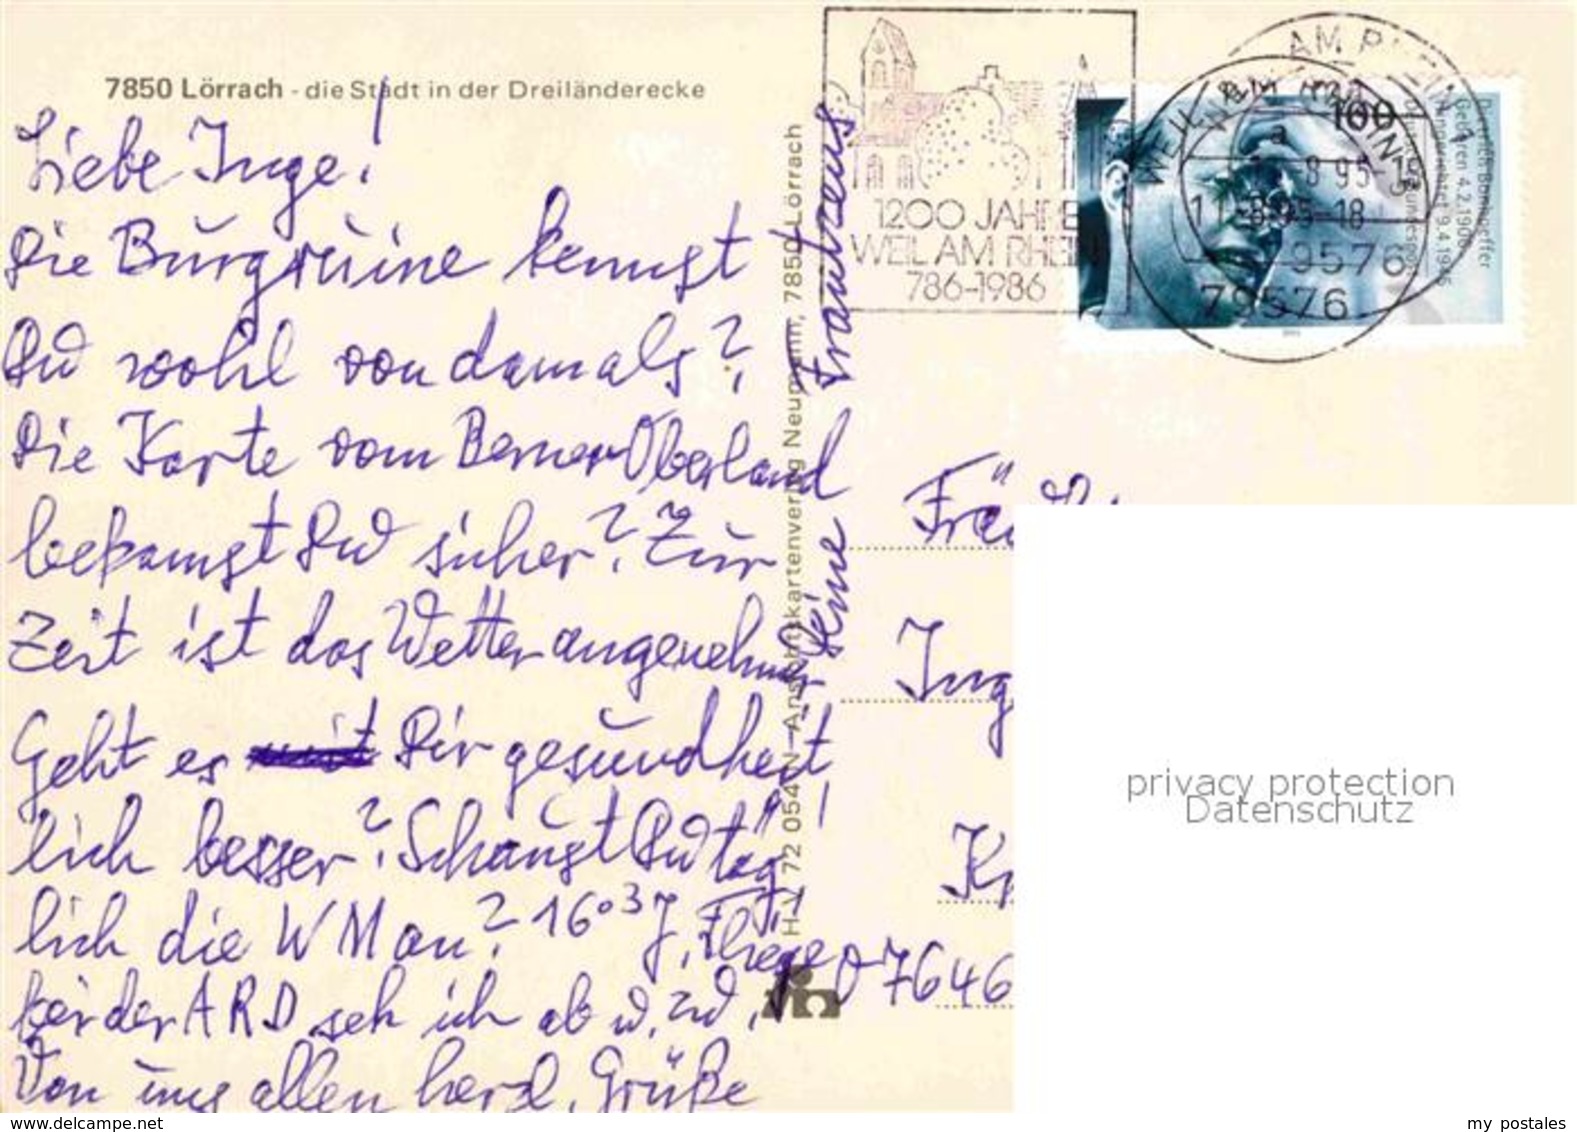 7850 Lörrach - die Stadt in der Dreiländerecke
Liebe Inge!
Die Burgruine kennst
Du wohl von damals?
Die Karte vom Berner Oberland
bekamst Du sicher? Zur
Zeit ist das Wetter angenehmer
Geht es Dir gesundheit
lich besser? Schaust Du täg
lich die WM an? 16.03
bei der ARD seh ich ab u. zu
Von uns allen herzl. Grüße
Deine
H-V 72 054 N - Ansichtskartenverlag Neumann, 7850 Lörrach
1200 JAHRE
WEIL AM RHEIN
786-1986
WEIL AM RHEIN
79576
100
Dietrich Bonhoeffer
Geboren 4.2.1906
Hingerichtet 9.4.1945
Ing
07646
privacy protection
Datenschutz
www.delcampe.net
my postales